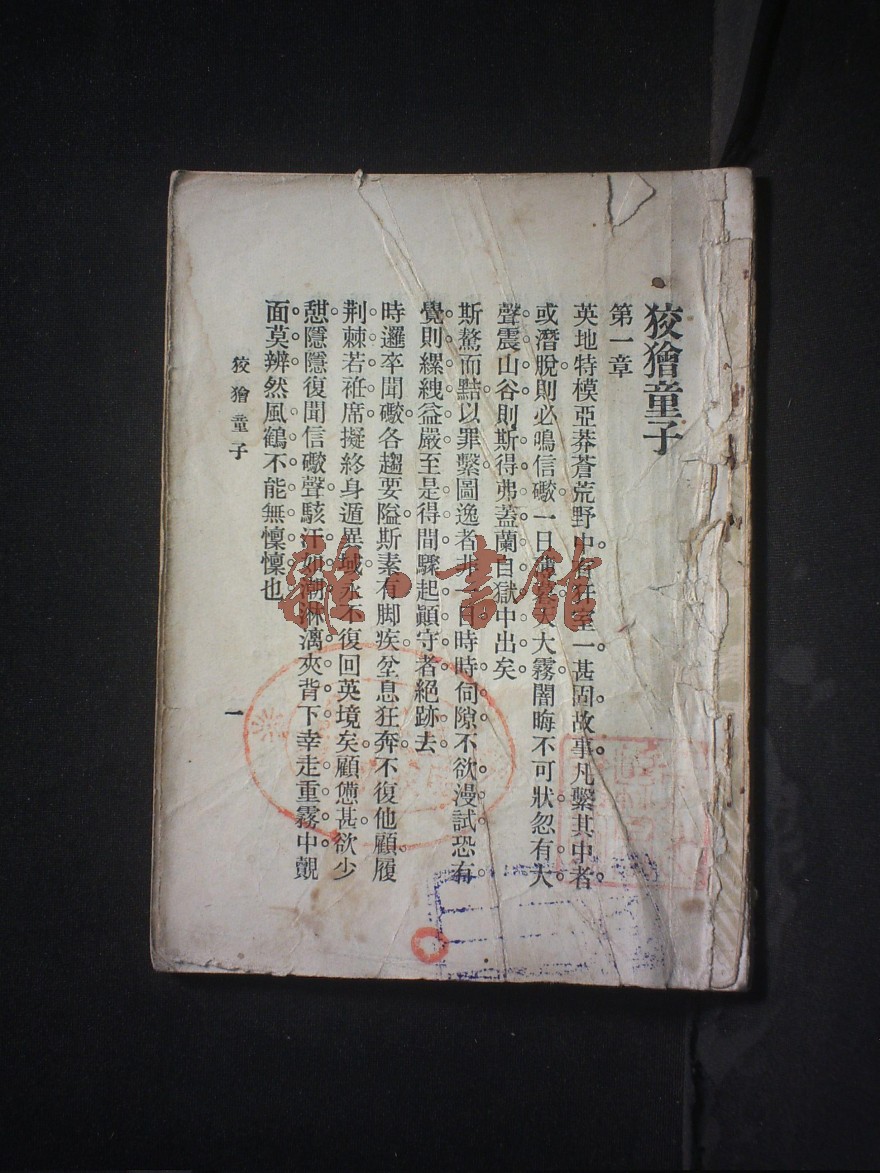 狡獪童子
第一章
英地特模亞莽蒼荒野中。有狂室一甚固。故事凡繫其中者。
或潛脫則必鳴信礮。一日 大霧闇晦不可狀。忽有大
聲震山谷。則斯得弗蓋蘭自獄中出矣
斯驁而黠。以罪繫。圖逸者非一日。時時伺隙。不欲漫試。恐有
覺則縲絏益嚴。至是得間驟起。顚守者絕跡去。
時邏卒聞礮。各趨要隘。斯素有脚疾。坌息狂奔。不復他顧。履
荆棘若袵席。擬終身遁異域。永不復回英境矣。顧憊甚。欲少
憇。隱隱復聞信礮聲。駭汗如潮。淋漓夾背下。幸走重霧中。覿
面莫辨。然風鶴不能無懍懍也。
狡獪童子
一
雜·書館